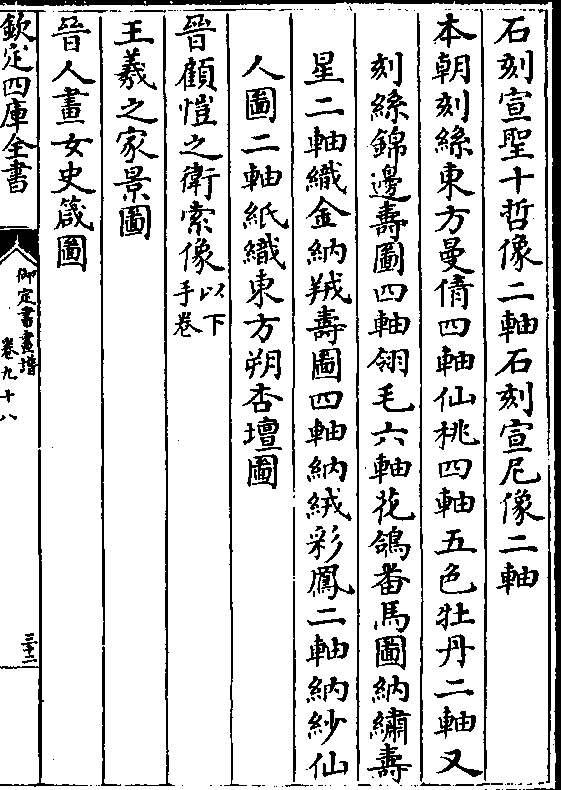 石刻宣聖十哲像二軸石刻宣尼像二軸
本朝刻絲東方曼倩四軸仙桃四軸五色牡丹二軸又
刻絲錦邊壽圖四軸翎毛六軸花鴿番馬圖納繡壽
星二軸織金納羢壽圖四軸納絨彩鳳二軸納紗仙
人圖二軸紙織東方朔杏壇圖
晉顧愷之衛索像以下手卷
王羲之家景圖
晉人畫女史箴圖
欽定四庫全書
御定書畫譜
卷九十八
三十二